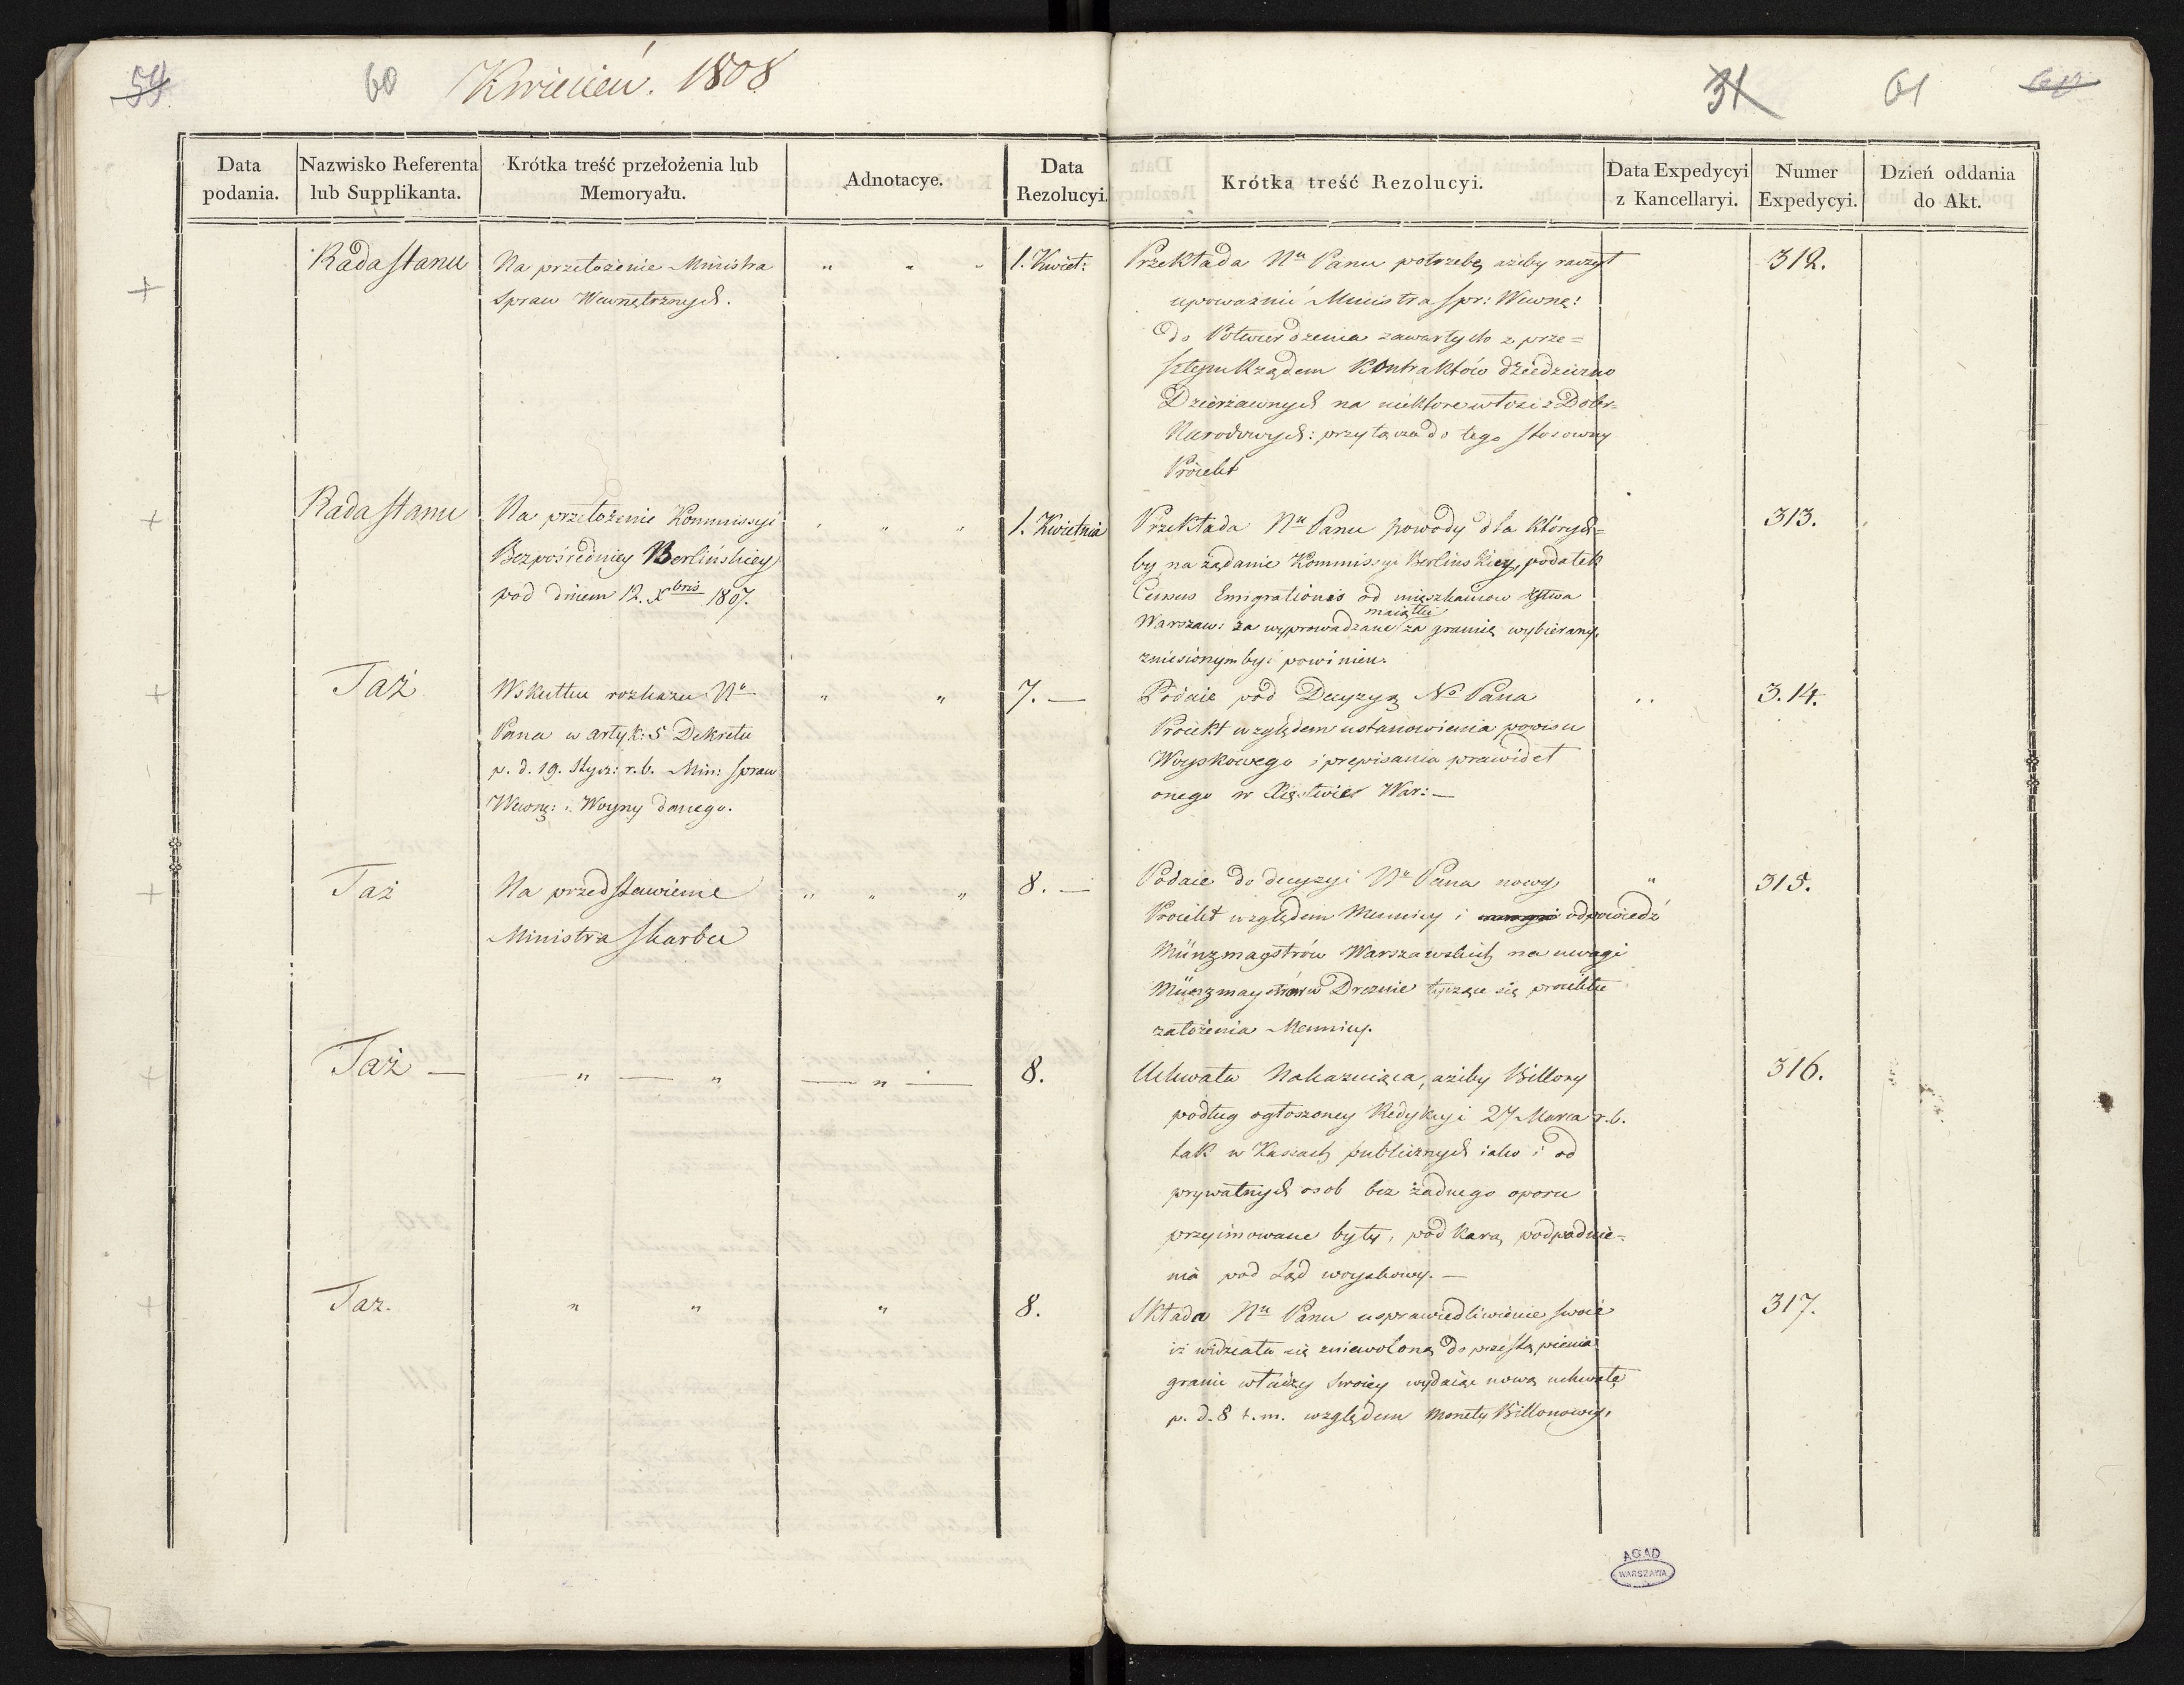 59
60
Kwiecień. 1808
31
61
Data podania.
Nazwisko Referenta lub Supplikanta.
Krótka treść przełożenia lub Memoryału.
Adnotacye.
Data Rezolucyi.
Krótka treść Rezolucyi.
Data Expedycyi z Kancellaryi.
Numer Expedycyi.
Dzień oddania do Akt.
+
Rada Stanu
Na przełożenie Ministra
Spraw Wewnętrznych.
" " "
1. Kwiet:
Przekłada Nu Panu potrzebę ażeby raczył
upoważnić Ministra Spr: Wewnę:
do Potwierdzenia zawartych z prze=
szłym Rządem Kontraktów dziedziczno
Dzierżawnych na niektore włości z Dobr=
Narodowych: przyłącza do tego stosowny
Proiekt
312.
+
Rada Stanu
Na przełożenie Kommissyi
Bezpośredniey Berlińskiey
pod dniem 12. Xbris 1807.
" " "
1. Kwietnia
Przekłada Nu Panu powody dla których=
by na żądanie Kommissyi Berlinskiey, podatek
Census Emigrationis od mieszkancow Xstwa
Warszaw: za wyprowadzane maiątki za granicę wybierany,
zniesionym być powinien.
313.
+
Taż
Wskutku rozkazu No
Pana w artyk: 5 Dekretu
p. d. 19. Stycz: r. b. Min: Spraw
Wewnę: i Woyny danego.
" "
7. —
Podaie pod Decyzyą No Pana
Proiekt względem ustanowienia popisu
Woyskowego i prepisania prawideł
onego w Xięstwie War: —
. .
3.14.
+
Taż
Na przedstawienie
Ministra Skarbu
" " "
8. —
Podaie do decyzyi No Pana nowy
Proiekt względem Mennicy i odpowiedź
Münzmaystrów Warszawskich na uwagi
Münzmaystrów w Dreznie tyczące się proiektu
założenia Mennicy.
"
315.
+
Taż —
— " — "
— " —
8.
Uchwała Nakazuiąca, ażeby Billony
podług ogłoszoney Redukcyi 27 Marca r. b.
tak w Kassach publicznych iako i od
prywatnych osob bez żadnego oporu
przyimowane były, pod karą podpadnie=
nia pod Sąd woyskowy. —
316.
+
Taz.
" "
"
8.
Składa Nu Panu usprawiedliwienie swoie
iż widziała się zniewoloną do przestąpienia
granic władzy swoiey wydaiąc nową uchwałę
p. d. 8 t. m. względem Monety Billonowey.
317.
AGAD
WARSZAWA